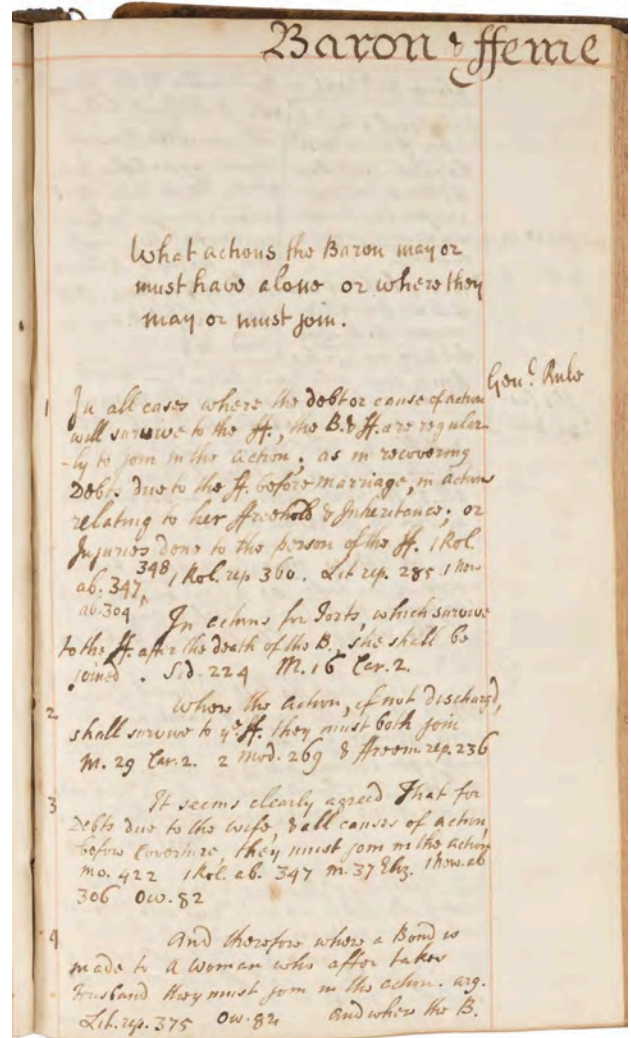 Baron & ffeme
What actions the Baron may or
must have alone or where they
may or must join.
Gen.l Rule
1 In all cases where the debt or cause of action
will survive to the ff., the B. & ff. are regular-
-ly to join in the action; as in recovering
Debts due to the ff. before marriage, in actions
relating to her ffreehold & Inheritance; or
Injuries done to the person of the ff. 1 Rol.
ab. 347, 348 1 Rol. rep 360. Lit rep. 285 1 New
ab. 304
In actions for Torts, which survive
to the ff. after the death of the B., she shall be
joined. Sid. 224 M. 16 Car. 2.
2 Where the action, if not dischargd,
shall survive to ye ff. they must both join
M. 29 Car. 2. 2 mod. 269 & ffreem. rep. 236
3 It seems clearly agreed That for
Debts due to the wife, & all causes of action
before Coverture, they must join in the action
mo. 422 1 Rol. ab. 347 m. 37 Eliz. 1 New. ab
306 Ow. 82
4 And therefore where a Bond is
made to a woman who after takes
Husband they must join in the action. arg.
Lit. rep. 375 Ow. 82 and where the B.